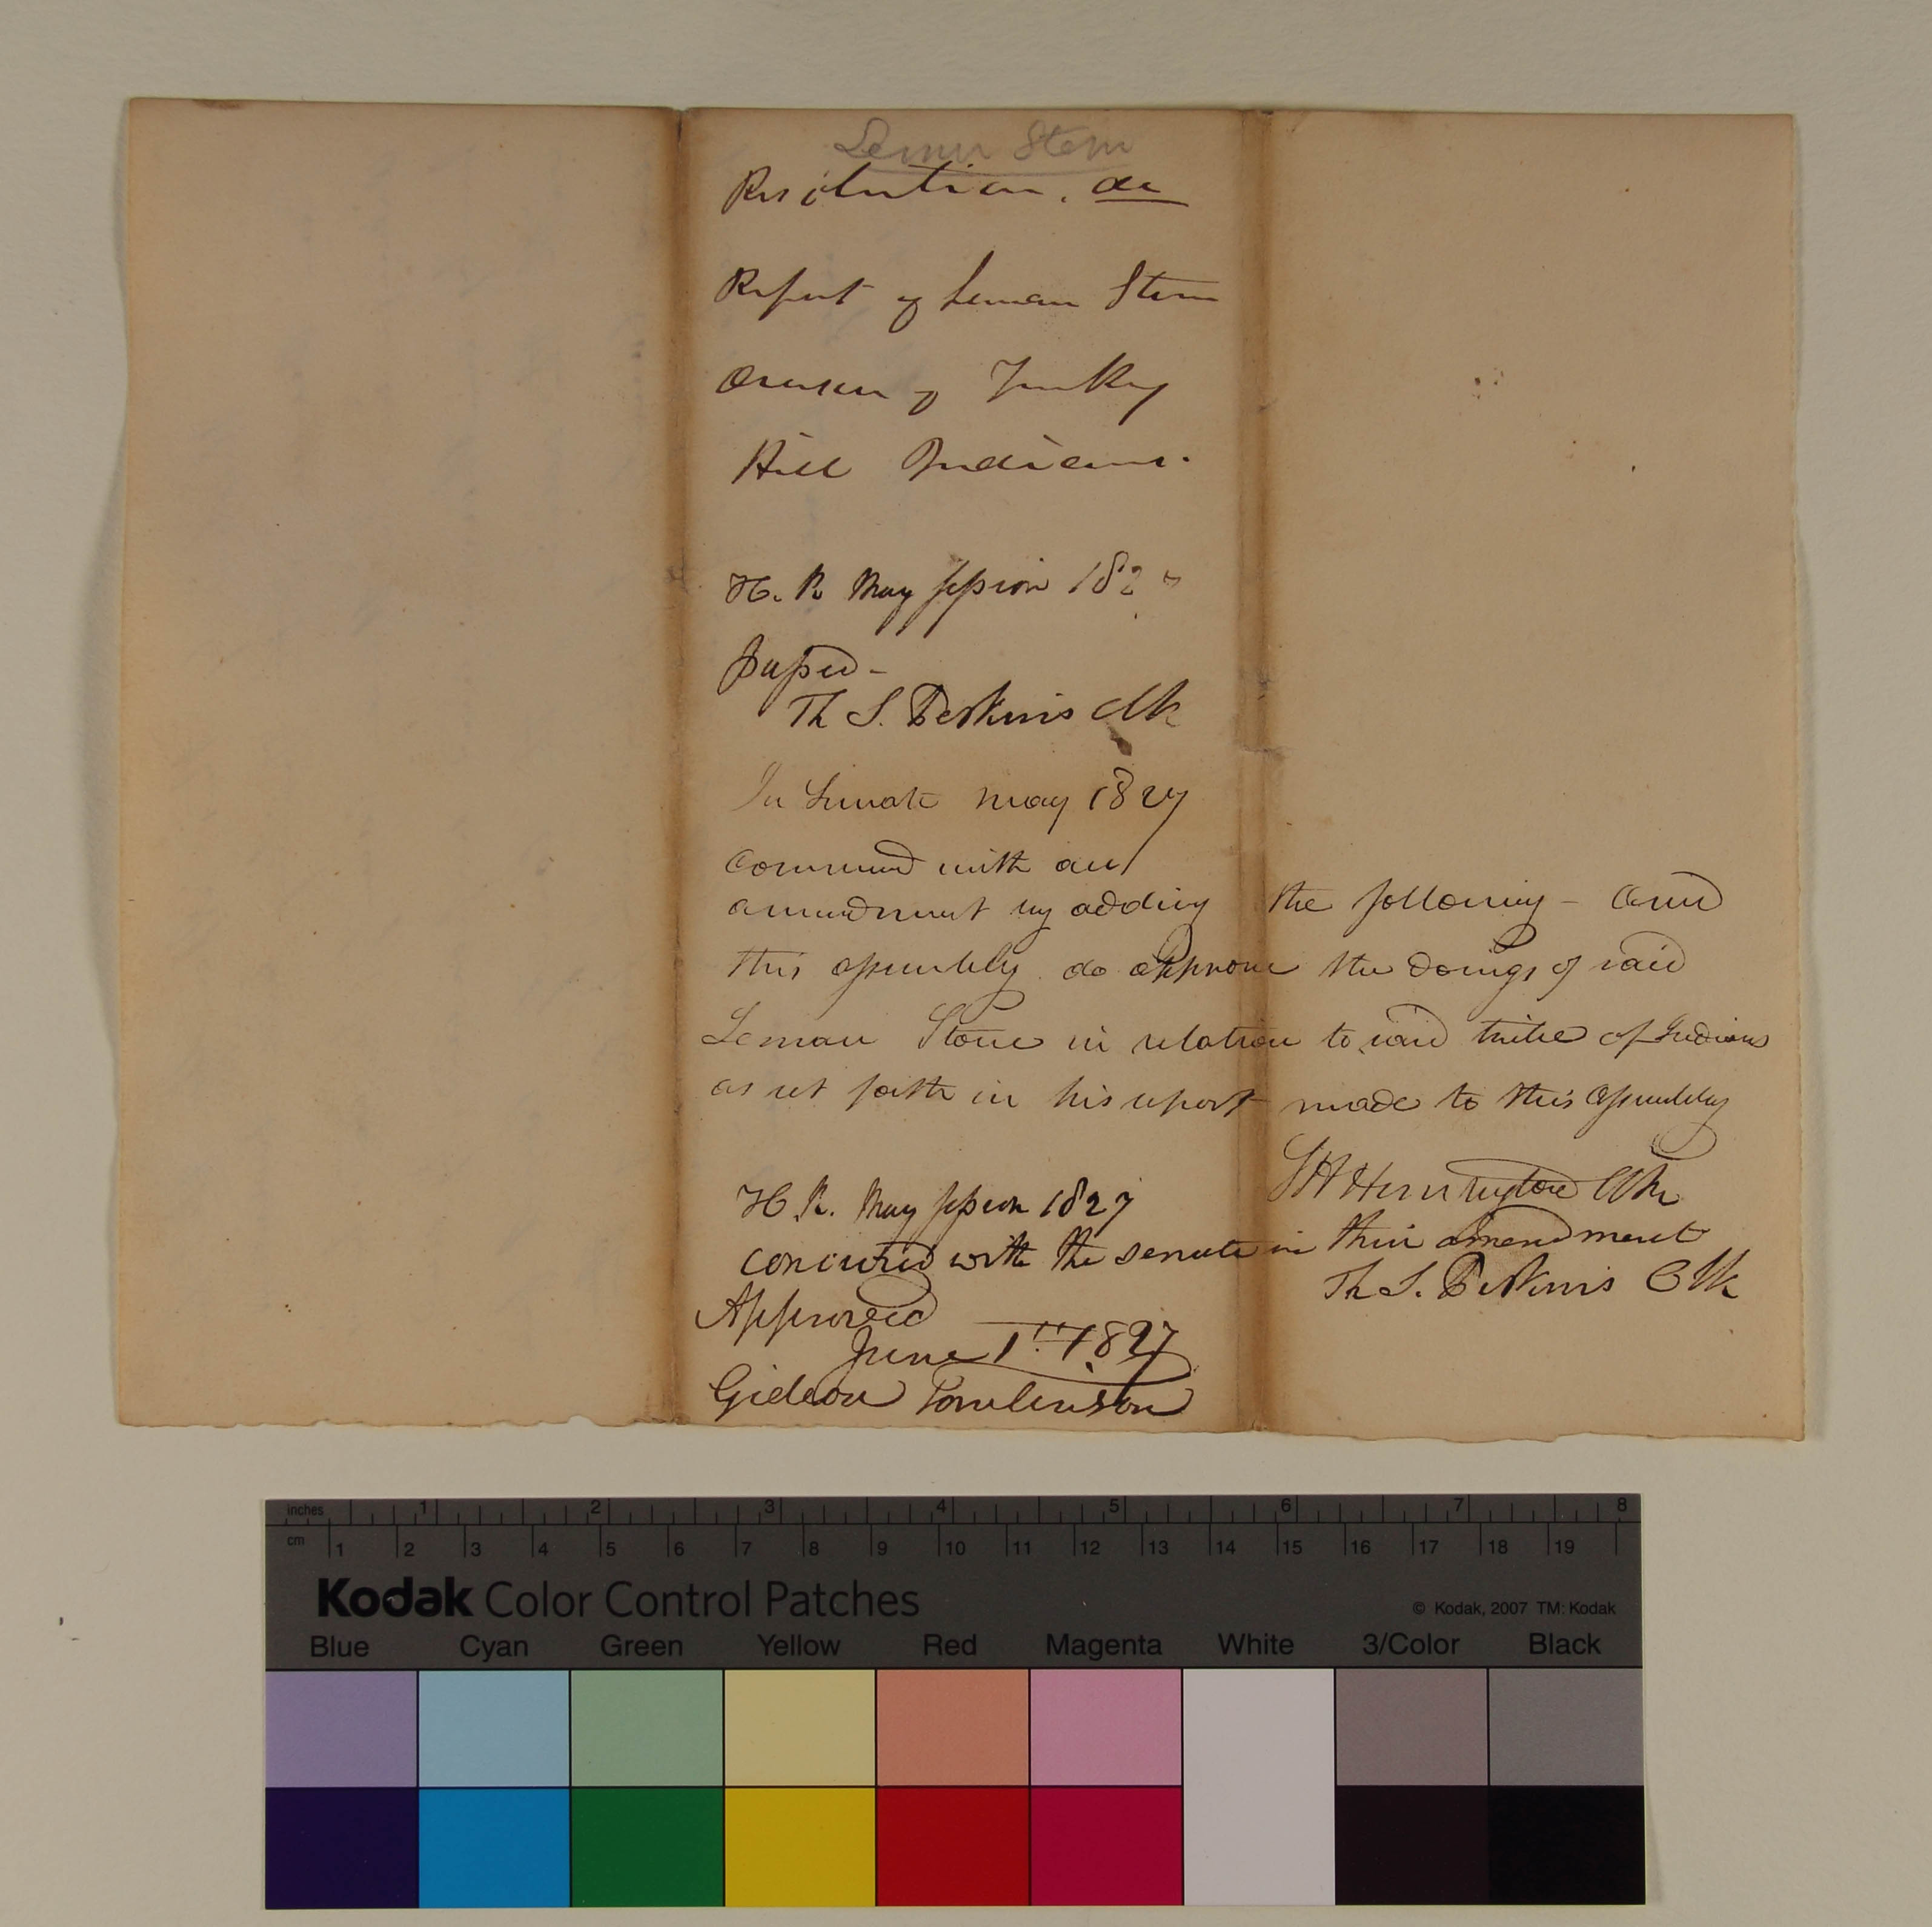 Leman Stone
Resolution. &c
Report of Leman Stone
Overseer of Turkey
Hill Indians.
H. R May Session 1827
passed-
Th S. Perkins Clk
In Senate May 1827
Concurred with an
amendment by adding the following - And
this assembly do approve the doings of said
Leman Stone in relation to said tribe of Indians
as set forth in his report made to this Assembly
S H Huntington Clk
H R. May Session 1827
concurred with the senate in their amendment
Th S. Perkins Clk
Approved
June 1st. 1827
Gideon Tomlinson
inches 1 2 3 4 5 6 7 8
cm 1 2 3 4 5 6 7 8 9 10 11 12 13 14 15 16 17 18 19
Kodak Color Control Patches
© Kodak, 2007 TM: Kodak
Blue Cyan Green Yellow Red Magenta White 3/Color Black